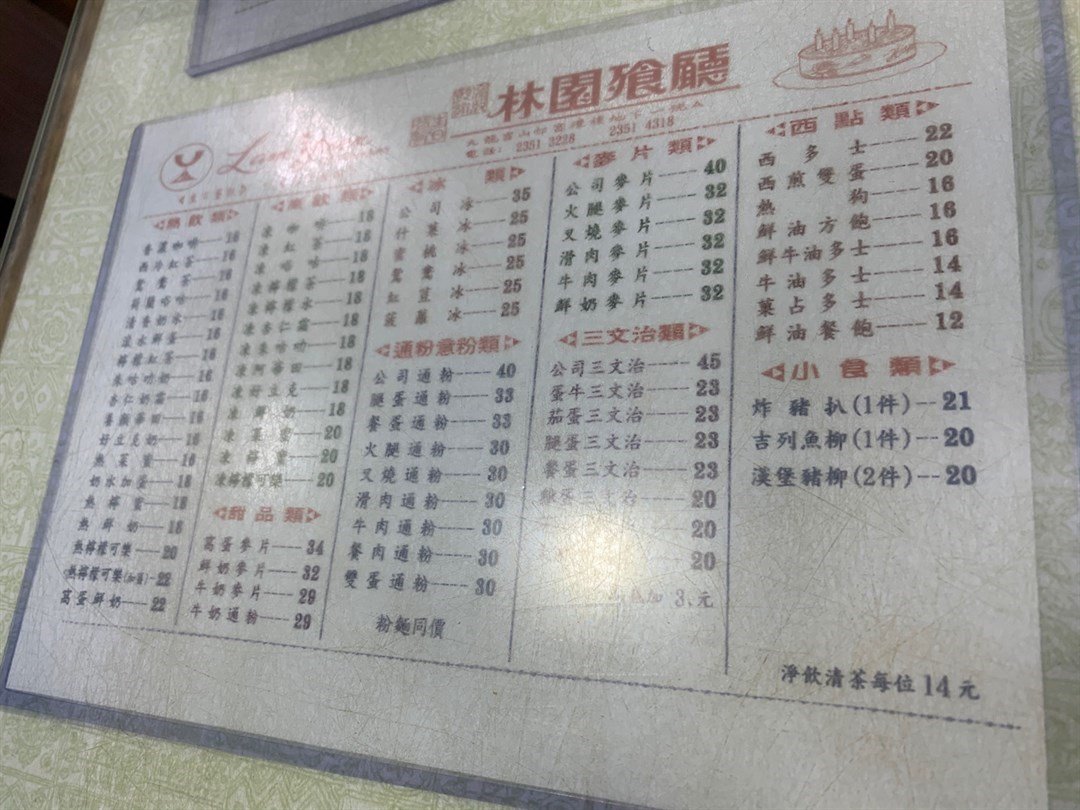 林園餐廳
電話: 2351 3228 2351 4318
熱飲類
香濃咖啡 16
西冷紅茶 16
鴛鴦茶 16
荷蘭咕咕 16
清香奶水 16
滾水鮮蛋 16
檸檬紅茶 16
朱咕叻奶 16
杏仁奶霜 16
好立克奶 16
熱菓蜜 16
奶水加蛋 18
熱檸蜜 18
熱鮮奶 18
熱檸檬可樂 20
熱檸檬可樂(加薑) 22
窩蛋鮮奶 22
凍飲類
凍咖啡 18
凍紅茶 18
凍咕咕 18
凍檸檬茶 18
凍檸檬水 18
凍杏仁霜 18
凍朱咕叻 18
凍阿華田 18
凍好立克 18
凍鮮奶 18
凍菓蜜 20
凍檸蜜 20
凍檸檬可樂 20
甜品類
窩蛋麥片 34
鮮奶麥片 32
牛奶麥片 29
牛奶通粉 29
冰類
公司冰 35
什菓冰 25
蜜桃冰 25
鴛鴦冰 25
紅荳冰 25
菠蘿冰 25
通粉意粉類
公司通粉 40
腿蛋通粉 33
餐蛋通粉 33
火腿通粉 30
叉燒通粉 30
滑肉通粉 30
牛肉通粉 30
餐肉通粉 30
雙蛋通粉 30
粉麵同價
麥片類
公司麥片 40
火腿麥片 32
叉燒麥片 32
滑肉麥片 32
牛肉麥片 32
鮮奶麥片 32
三文治類
公司三文治 45
蛋牛三文治 23
茄蛋三文治 23
腿蛋三文治 23
餐蛋三文治 23
雞蛋三文治 20
20
20
加 3.元
西點類
西多士 22
西煎雙蛋 20
熱狗 16
鮮油方飽 16
鮮牛油多士 16
牛油多士 14
菓占多士 14
鮮油餐飽 12
小食類
炸豬扒(1件) 21
吉列魚柳(1件) 20
漢堡豬柳(2件) 20
淨飲清茶每位14元